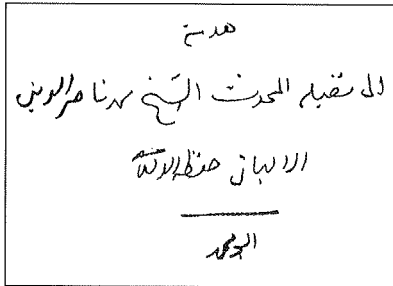 هدية
الى فضيلة المحدث الشيخ محمد ناصر الدين
الالباني حفظه الله
ابو محمد